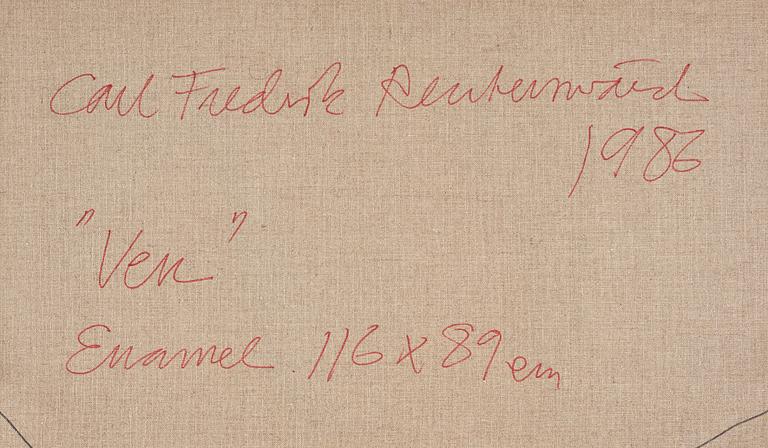 Carl Fredrik Reuterswärd
1986
"Ven"
Enamel. 116 x 89 cm